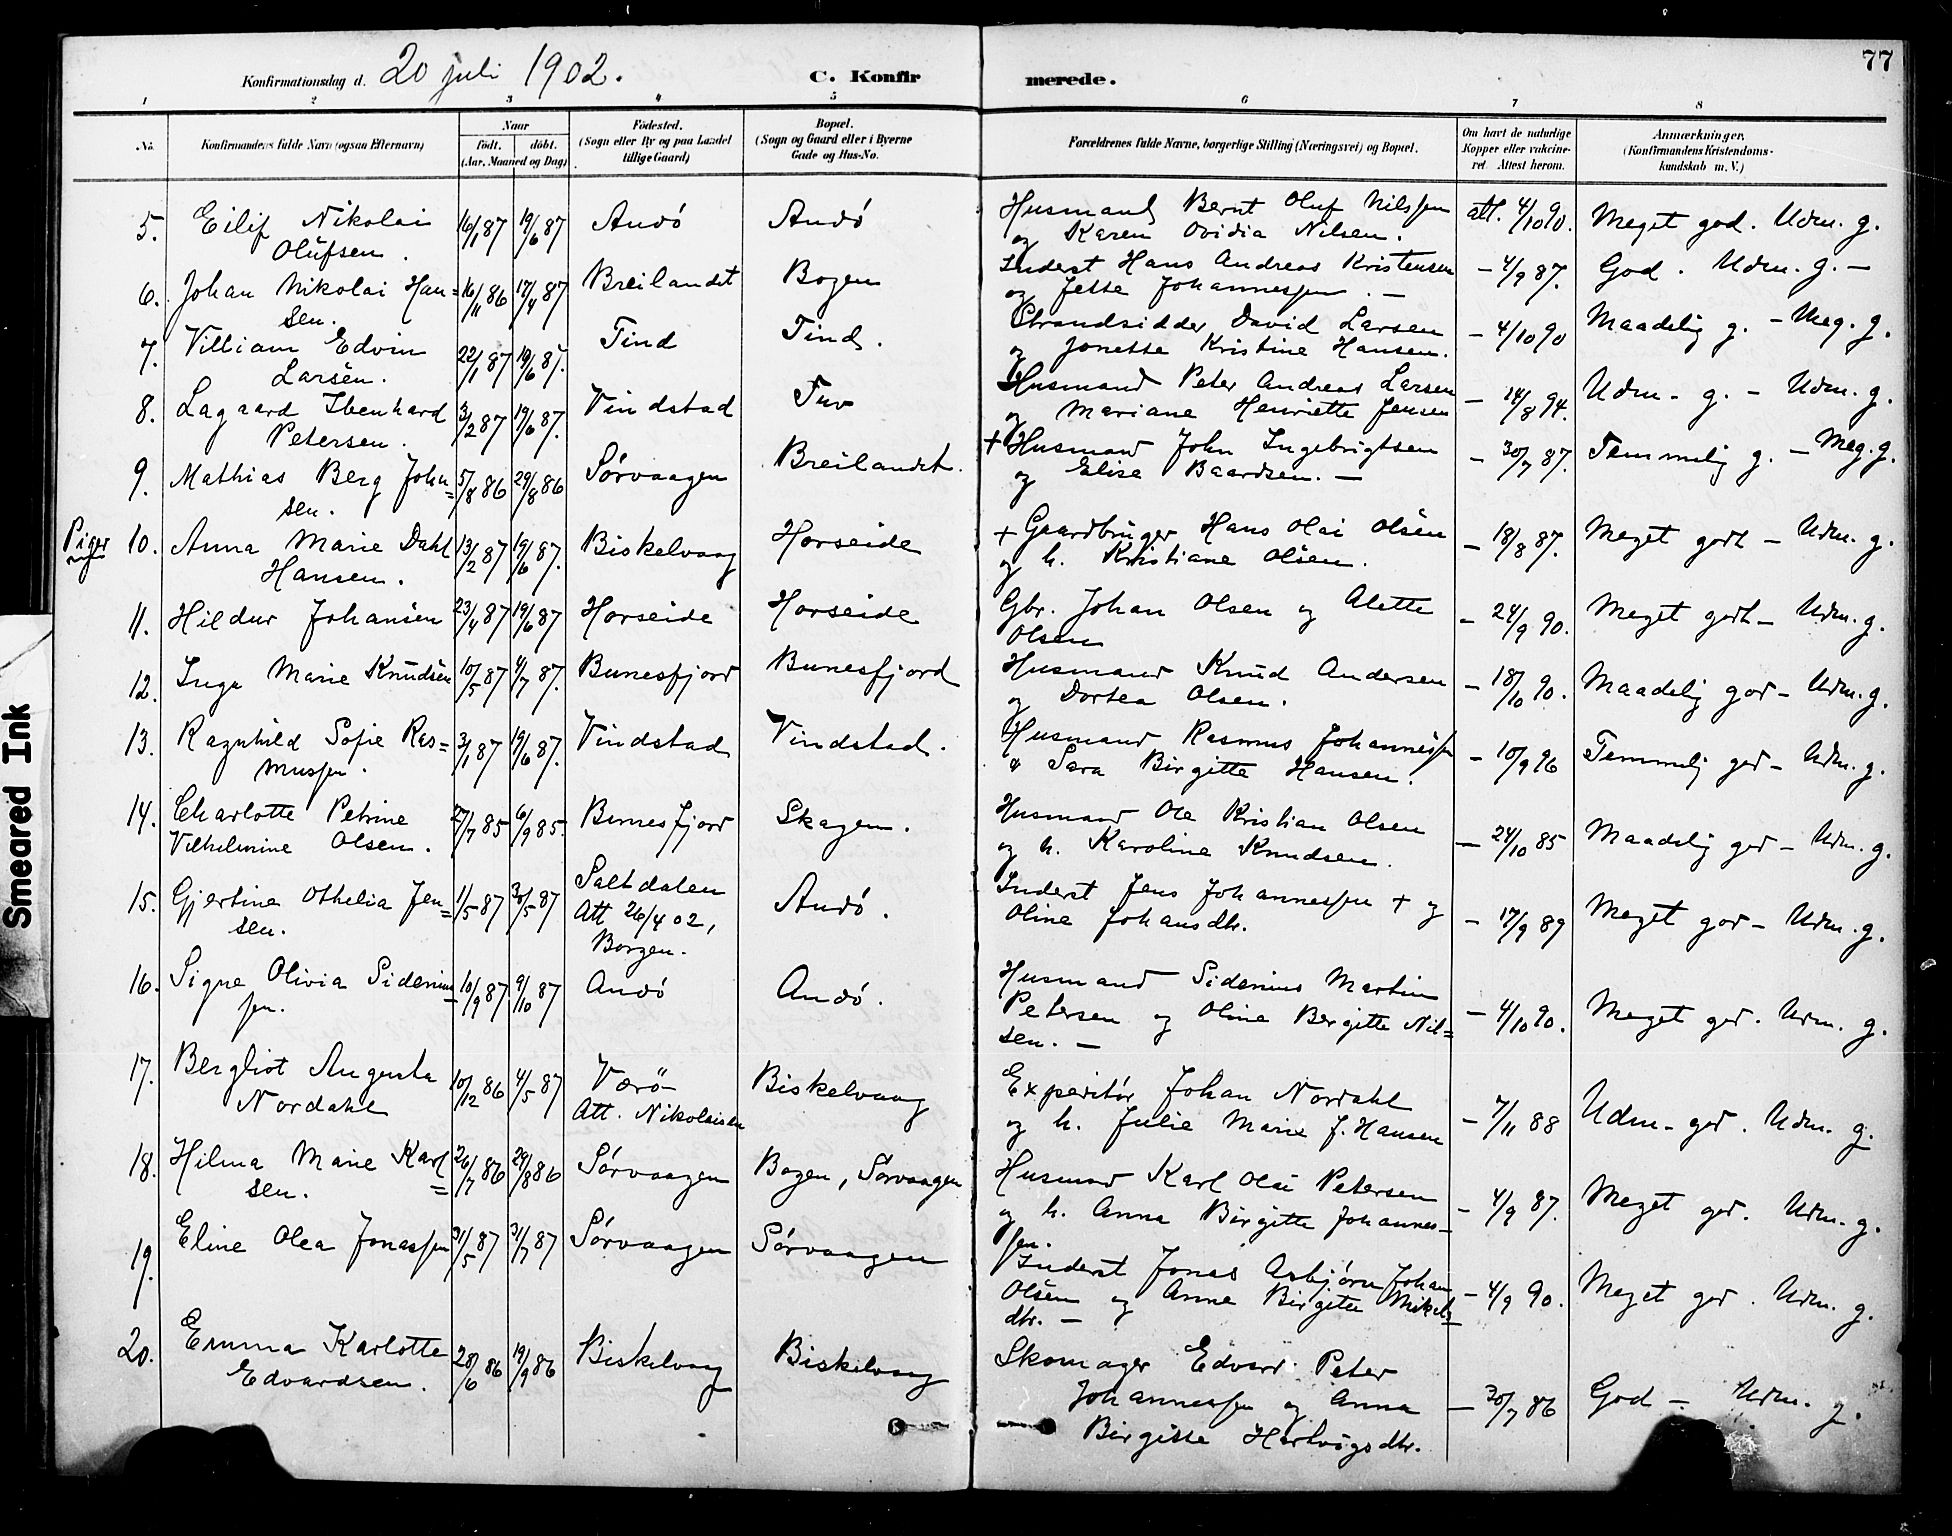 77
Konfirmationsdag d. 20 juli 1902. C. Konfirmerede.
1 2 3 4 5 6 7 8
No. Konfirmandens fulde Navn (ogsaa Efternavn) Naar født. døbt. (Aar, Maaned og Dag) Fødested. (Sogn eller By og paa Landet tillige Gaard) Bopæl. (Sogn og Gaard eller i Byerne Gade og Hus-No. Forældrenes fulde Navne, borgerlige Stilling (Næringsvei) og Bopæl. Om havt de naturlige Kopper eller vakcineret Attest herom. Anmærkninger. (Konfirmandens Kristendomskundskab m. V.)
5. Eilif Nikolai 16/1 87 19/6 87 Andö Andö Husmand Bernt Oluf Nilssen att. 4/10 90. Meget god. Udm. g.
Olufsen. og Karen Ovidia Nilsen.
6. Johan Nikolai Han= 16/11 86 17/4 87 Breilandet Bogen Inderst Hans Andreas Kristensen - 4/9 87. God. Udm. g. -
sen. og Jette Johannessen. -
7. Villiam Edvin 22/1 87 19/6 87. Tind Tind. Strandsidder David Larsen - 4/10 90 Maadelig g. - Meg. g.
Larsen. og Jonette Kristine Hansen.
8. Lagaard Ibenhard 3/2 87 19/6 87. Vindstad Tuv Husmand Peter Andreas Larsen - 14/8 94. Udm. g. - Udm. g.
Petersen. og Mariane Henriette Jensen
9. Mathias Berg John= 5/8 86 29/8 86 Sörvaagen Breilandet. + Husmand John Ingebrigtsen - 30/7 87. Temmelig g. - Meg. g.
sen. og Elise Baardsen. -
Piger
10. Anna Marie Dahl 13/2 87 19/6 87. Biskelvaag Horseide + Gaardbruger Hans Olai Olsen - 18/8 87. Meget godt - Udm. g.
Hansen. og h. Kristiane Olsen.
11. Hildur Johansen 23/4 87 19/6 87 Horseide Horseide Gbr. Johan Olsen og Alette - 24/9 90. Meget godt - Udm. g.
Olsen
12. Inga Marie Knudsen 10/5 87 4/7 87. Bunesfjord Bunesfjord Husmand Knud Andersen - 18/10 90. Maadelig god - Udm. g.
og Dortea Olsen.
13. Ragnhild Sofie Ras= 3/1 87 19/6 87. Vindstad Vindstad. Husmand Rasmus Johannessen - 10/9 96 Temmelig god - Udm. g.
mussen. " Sara Birgitte Hansen.
14. Charlotte Petrine 27/7 85 6/9 85. Bunesfjord Skagen. Husmand Ole Kristian Olsen - 24/10 85 Maadelig god - Udm. g.
Vilhelmine Olsen. og h. Karoline Knudsen.
15. Gjertine Othelia Jen= 1/5 87 30/5 87 Saltdalen Andö. Inderst Jens Johannessen + og - 17/9 89 Meget god - Udm. g.
sen. Att 26/4 02, Oline Johansdtr.
Borgen.
16. Signe Olivia Sidenius= 10/9 87 9/10 87 Andö Andö. Husmand Sidenius Martin - 4/10 90. Meget god. Udm. g.
sen. Petersen og Oline Bergitte Nil=
sen. -
17. Bergliot Augusta 10/12 86 4/5 87 Værö Biskelvaag Expeditör Johan Nordahl - 7/11 88 Udm. god. Udm. g.
Nordahl Att. Nikolaisen og h. Julie Marie J. Hansen
18. Hilma Marie Karl= 26/7 86 29/8 86 Sörvaagen Bogen, Sörvaagen Husmand Karl Olai Petersen - 4/9 87. Meget god. Udm. g.
sen. og h. Anna Birgitte Johannes=
sen.
19. Eline Olea Jonassen 31/5 87 31/7 87 Sörvaagen Sörvaagen Inderst Jonas Asbjörn Johan - 4/9 90. Meget god. Udm. g.
Olsen og Anne Birgitte Mikels=
dtr. -
20. Emma Karlotte 28/6 86 19/9 86 Biskelvaag Biskelvaag Skomager Edvard Peter
Edvardsen. Johannessen og Anna - 30/7 86 God - Udm. g.
Birgitte Hartvigsdtr.
Smeared Ink